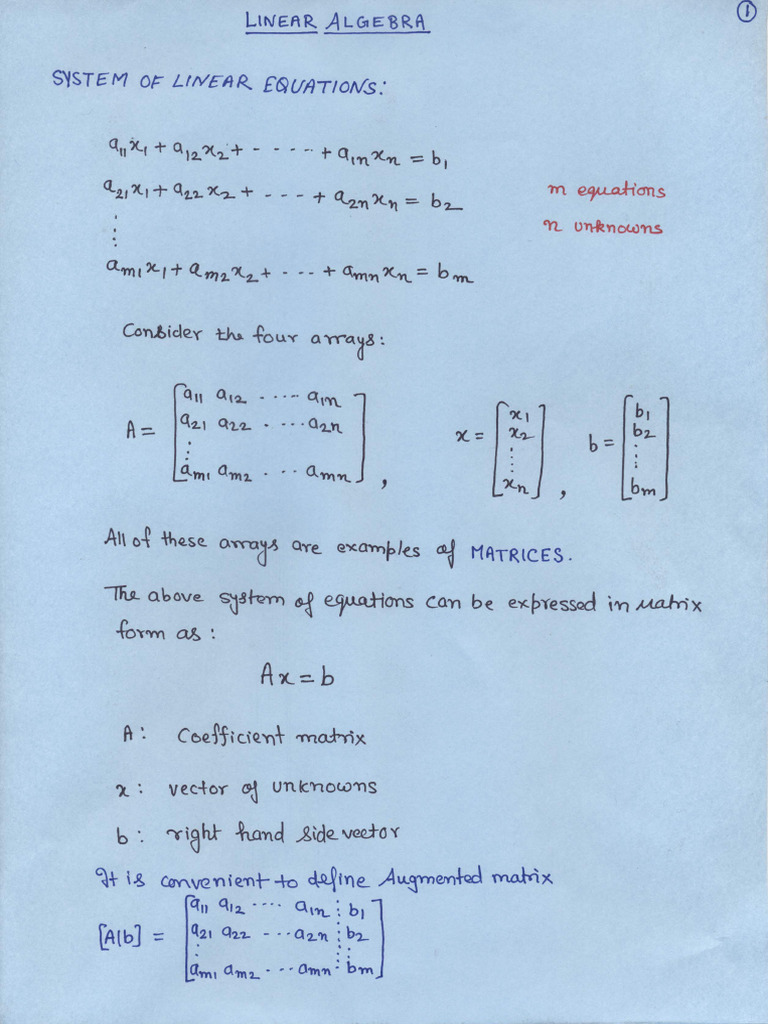 LINEAR ALGEBRA
①
SYSTEM OF LINEAR EQUATIONS:
a₁₁x₁ + a₁₂x₂ + - - - - - + a₁ₙxₙ = b₁
a₂₁x₁ + a₂₂x₂ + - - - - + a₂ₙxₙ = b₂
m equations
n unknowns
⋮
aₘ₁x₁ + aₘ₂x₂ + - - - + aₘₙxₙ = bₘ
Consider the four arrays:
A = [a₁₁ a₁₂ ····· a₁ₙ
a₂₁ a₂₂ ···· a₂ₙ
⋮
aₘ₁ aₘ₂ ··· aₘₙ],
x = [x₁
x₂
⋮
xₙ],
b = [b₁
b₂
⋮
bₘ]
All of these arrays are examples of MATRICES.
The above system of equations can be expressed in matrix
form as:
Ax = b
A: Coefficient matrix
x: vector of unknowns
b: right hand side vector
It is convenient to define Augmented matrix
[A|b] = [a₁₁ a₁₂ ···· a₁ₙ ⋮ b₁
a₂₁ a₂₂ ---a₂ₙ ⋮ b₂
⋮ ⋮ ⋮
aₘ₁ aₘ₂ ···· aₘₙ ⋮ bₘ]